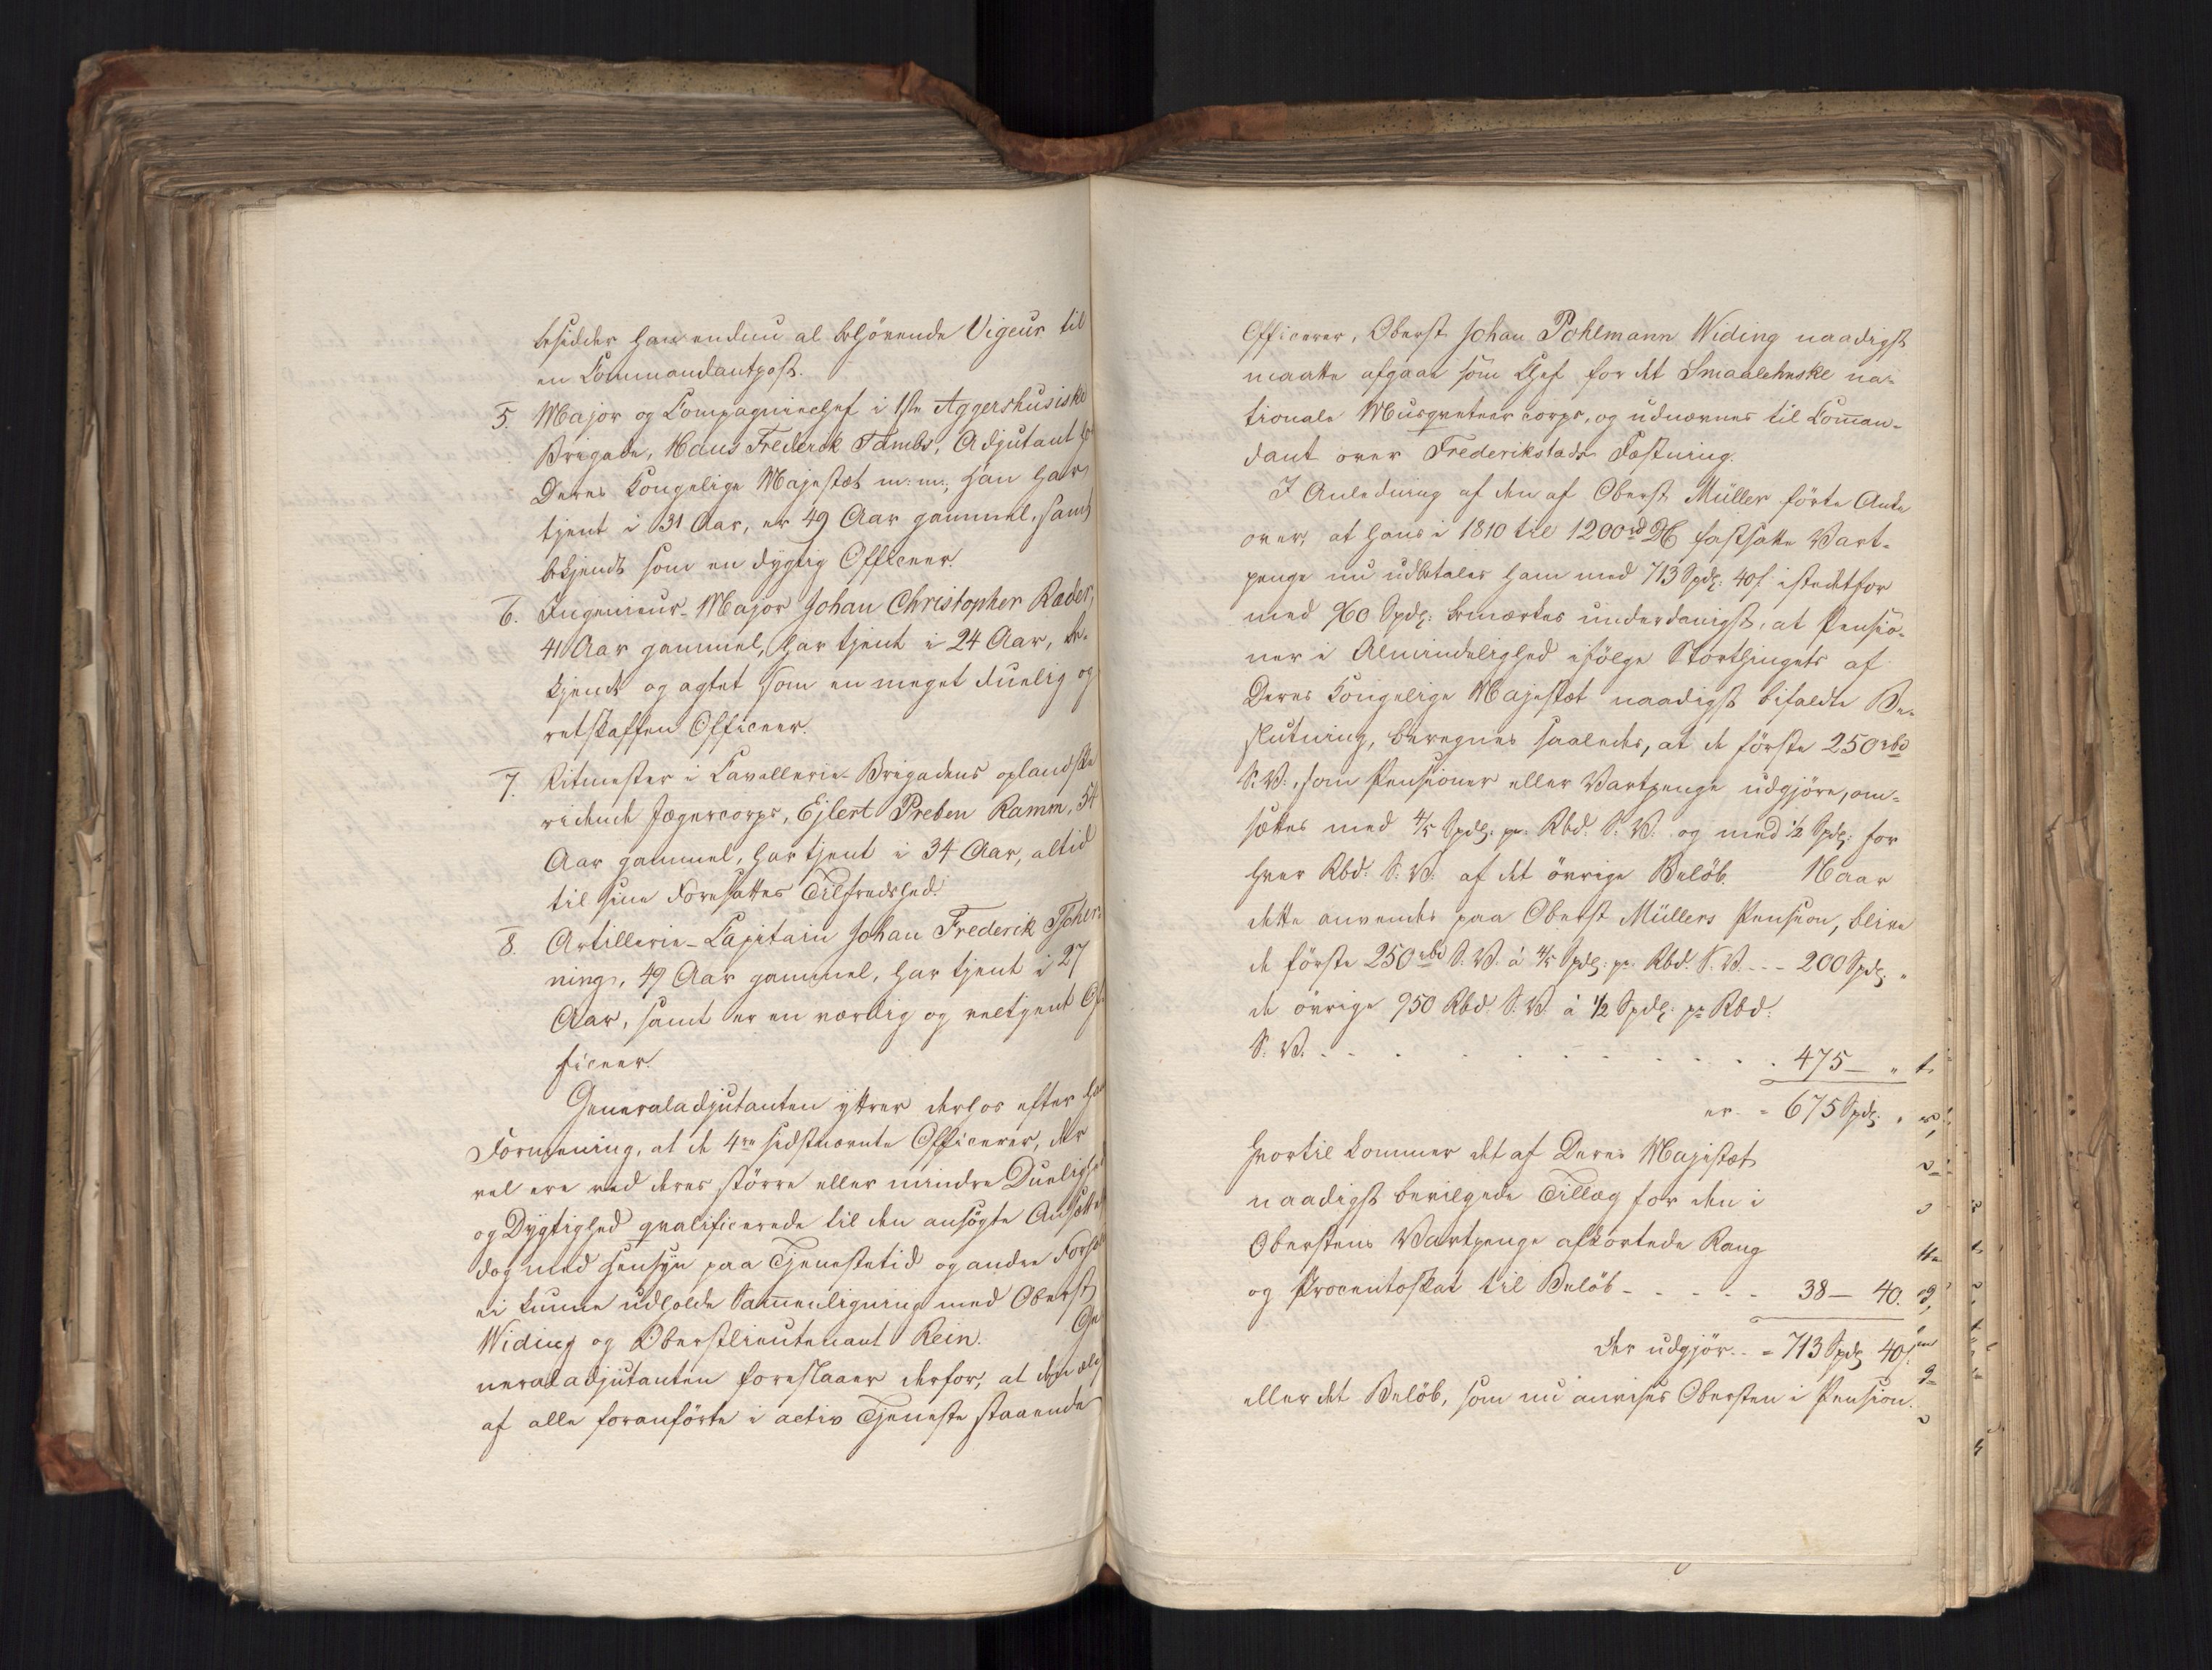 besidder han endnu al behörende Vigeur til
en Commandantpost.
5. Major og Compagniechef i 1ste Aggershusiske
Brigade, Hans Frederik Tambs, Adjutant hos
Deres Kongelige Majestæt m: m:, han har
tjent i 31 Aar, er 49 Aar gammel, samt
bekjendt som en dygtig Officeer.
6. Ingenieur-Major Johan Christopher Ræder,
41 Aar gammel, har tjent i 24 Aar, be-
kjendt og agtet som en meget duelig og
retskaffen Officeer.
7. Ritmester i Cavallerie-Brigadens oplandske
ridende Jægercorps, Ejlert Preben Ramm, 54
Aar gammel, har tjent i 34 Aar, altid
til sine Foresattes Tilfredshed.
8. Artillerie-Capitain Johan Frederik Tscher-
ning, 49 Aar gammel, har tjent i 27
Aar, samt er en værdig og veltjent Of-
ficeer.
Generaladjutanten yttrer derhos efter
Formening, at de 4re sidstnævnte Officerer, der
vel ere ved deres större eller mindre Duelighed
og Dygtighed qvalificerede til den ansögte Ansættelse
dog med Hensyn paa Tjenestetid og andre
ei kunne udholde Sammenligning med Oberst
Widing og Oberstlieutenant Rein. Ge-
neraladjutanten foreslaaer derfor, at den
af alle foranförte i activ Tjeneste staaende
Officerer, Oberst Johan Pohlmann Widing naadigst
maatte afgaae som Chef for det Smaalehnske na-
tionale Musqueteercorps, og udnævnes til Comman-
dant over Frederikstads Fæstning.
I Anledning af den af Oberst Müller förte Anke
over, at hans i 1810 til 1200 rd fastsatte Vart-
penge nu udbetales ham med 713 Spdlr: 40 s. istedetfor
med 960 Spdlr: bemærkes underdanigst, at Pensio-
ner i Almindelighed ifölge Storthingets af
Deres Kongelige Majestæt naadigst bifaldte Be-
slutning, beregnes saaledes, at de förste 250 rbd
S: V:, som Pensioner eller Vartpenge udgjöre, om-
sættes med 4/5 Spdlr: pr. Rbd. S: V: og med 1/2 Spdlr: for
hver Rbd: S: V: af det övrige Belöb. Naar
dette anvendes paa Oberst Müllers Pension, blive
de förste 250 rbd S: V: á 4/5 Spdlr: pr. Rbd. S: V: - - - 200 Spdlr. "
de övrige 950 Rbd. S: V: á 1/2 Spdlr: pr Rbd.
S: V. - - - 475 — "
er = 675 Spdlr. "
hvortil kommer det af Deres Majestæt
naadigst bevilgede Tillæg for den i
Oberstens Vartpenge afkortede Rang
og Procentoskat til Belöb - - - - - 38 — 40.
der udgjör - - = 713 Spdlr 40 s.
eller det Belöb, som nu anvises Obersten i Pension.